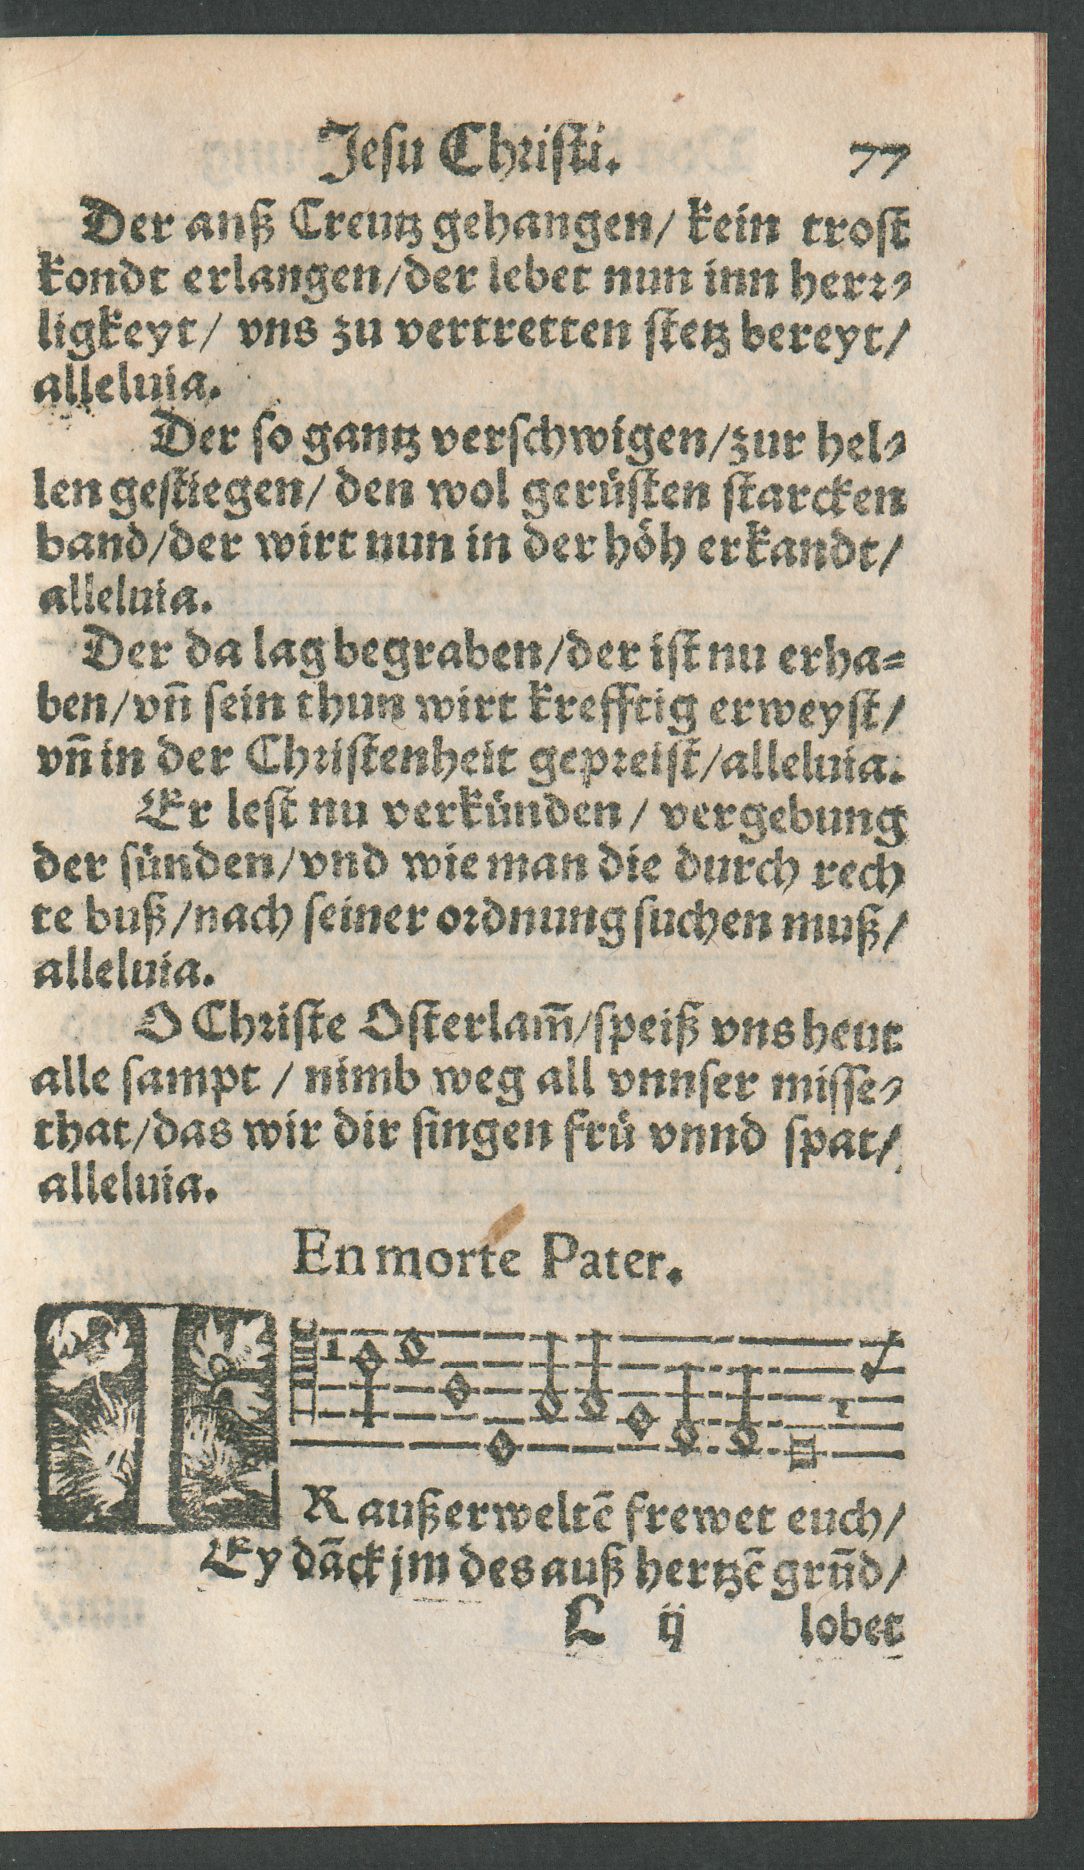 Jesu Christi. 77
Der anß Creutz gehangen/ kein trost
kondt erlangen/der lebet nun inn herr⸗
ligkeyt/ vns zu vertretten stetz bereyt/
alleluia.
Der so gantz verschwigen/zur hel⸗
len gestiegen/ den wol gerüsten starcken
band/der wirt nun in der höh erkandt/
alleluia.
Der da lag begraben/der ist nu erha⸗
ben/vn̄ sein thun wirt krefftig erweyst/
vn̄ in der Christenheit gepreist/alleluia.
Er lest nu verkünden/ vergebung
der sünden/vnd wie man die durch rech
te buß/nach seiner ordnung suchen muß/
alleluia.
O Christe Osterlam̄/speiß vns heut
alle sampt / nimb weg all vnnser misse⸗
that/das wir dir singen frü vnnd spat/
alleluia.
En morte Pater.
IR außerweltē frewet euch/
Ey dāck jm des auß hertzē grūd/
L ij lobet